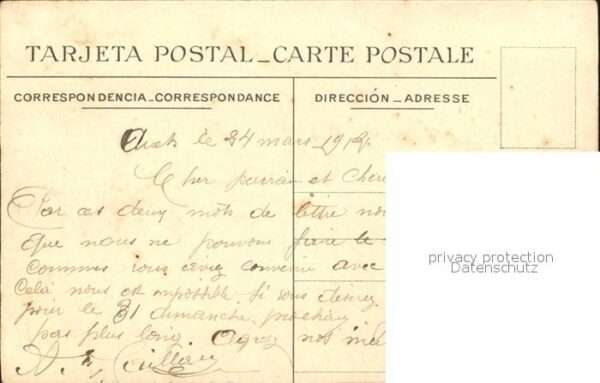 TARJETA POSTAL_CARTE POSTALE
CORRESPONDENCIA_CORRESPONDANCE
DIRECCIÓN_ADRESSE
le 24 mars 191
Cher parrain et Chère
Par ces deux mots de lettre
que nous ne pouvons faire le
comme vous aviez convenu avec
Celà nous est impossible si vous désirez
pour le 31 dimanche prochain
pas plus loin. nos
privacy protection
Datenschutz